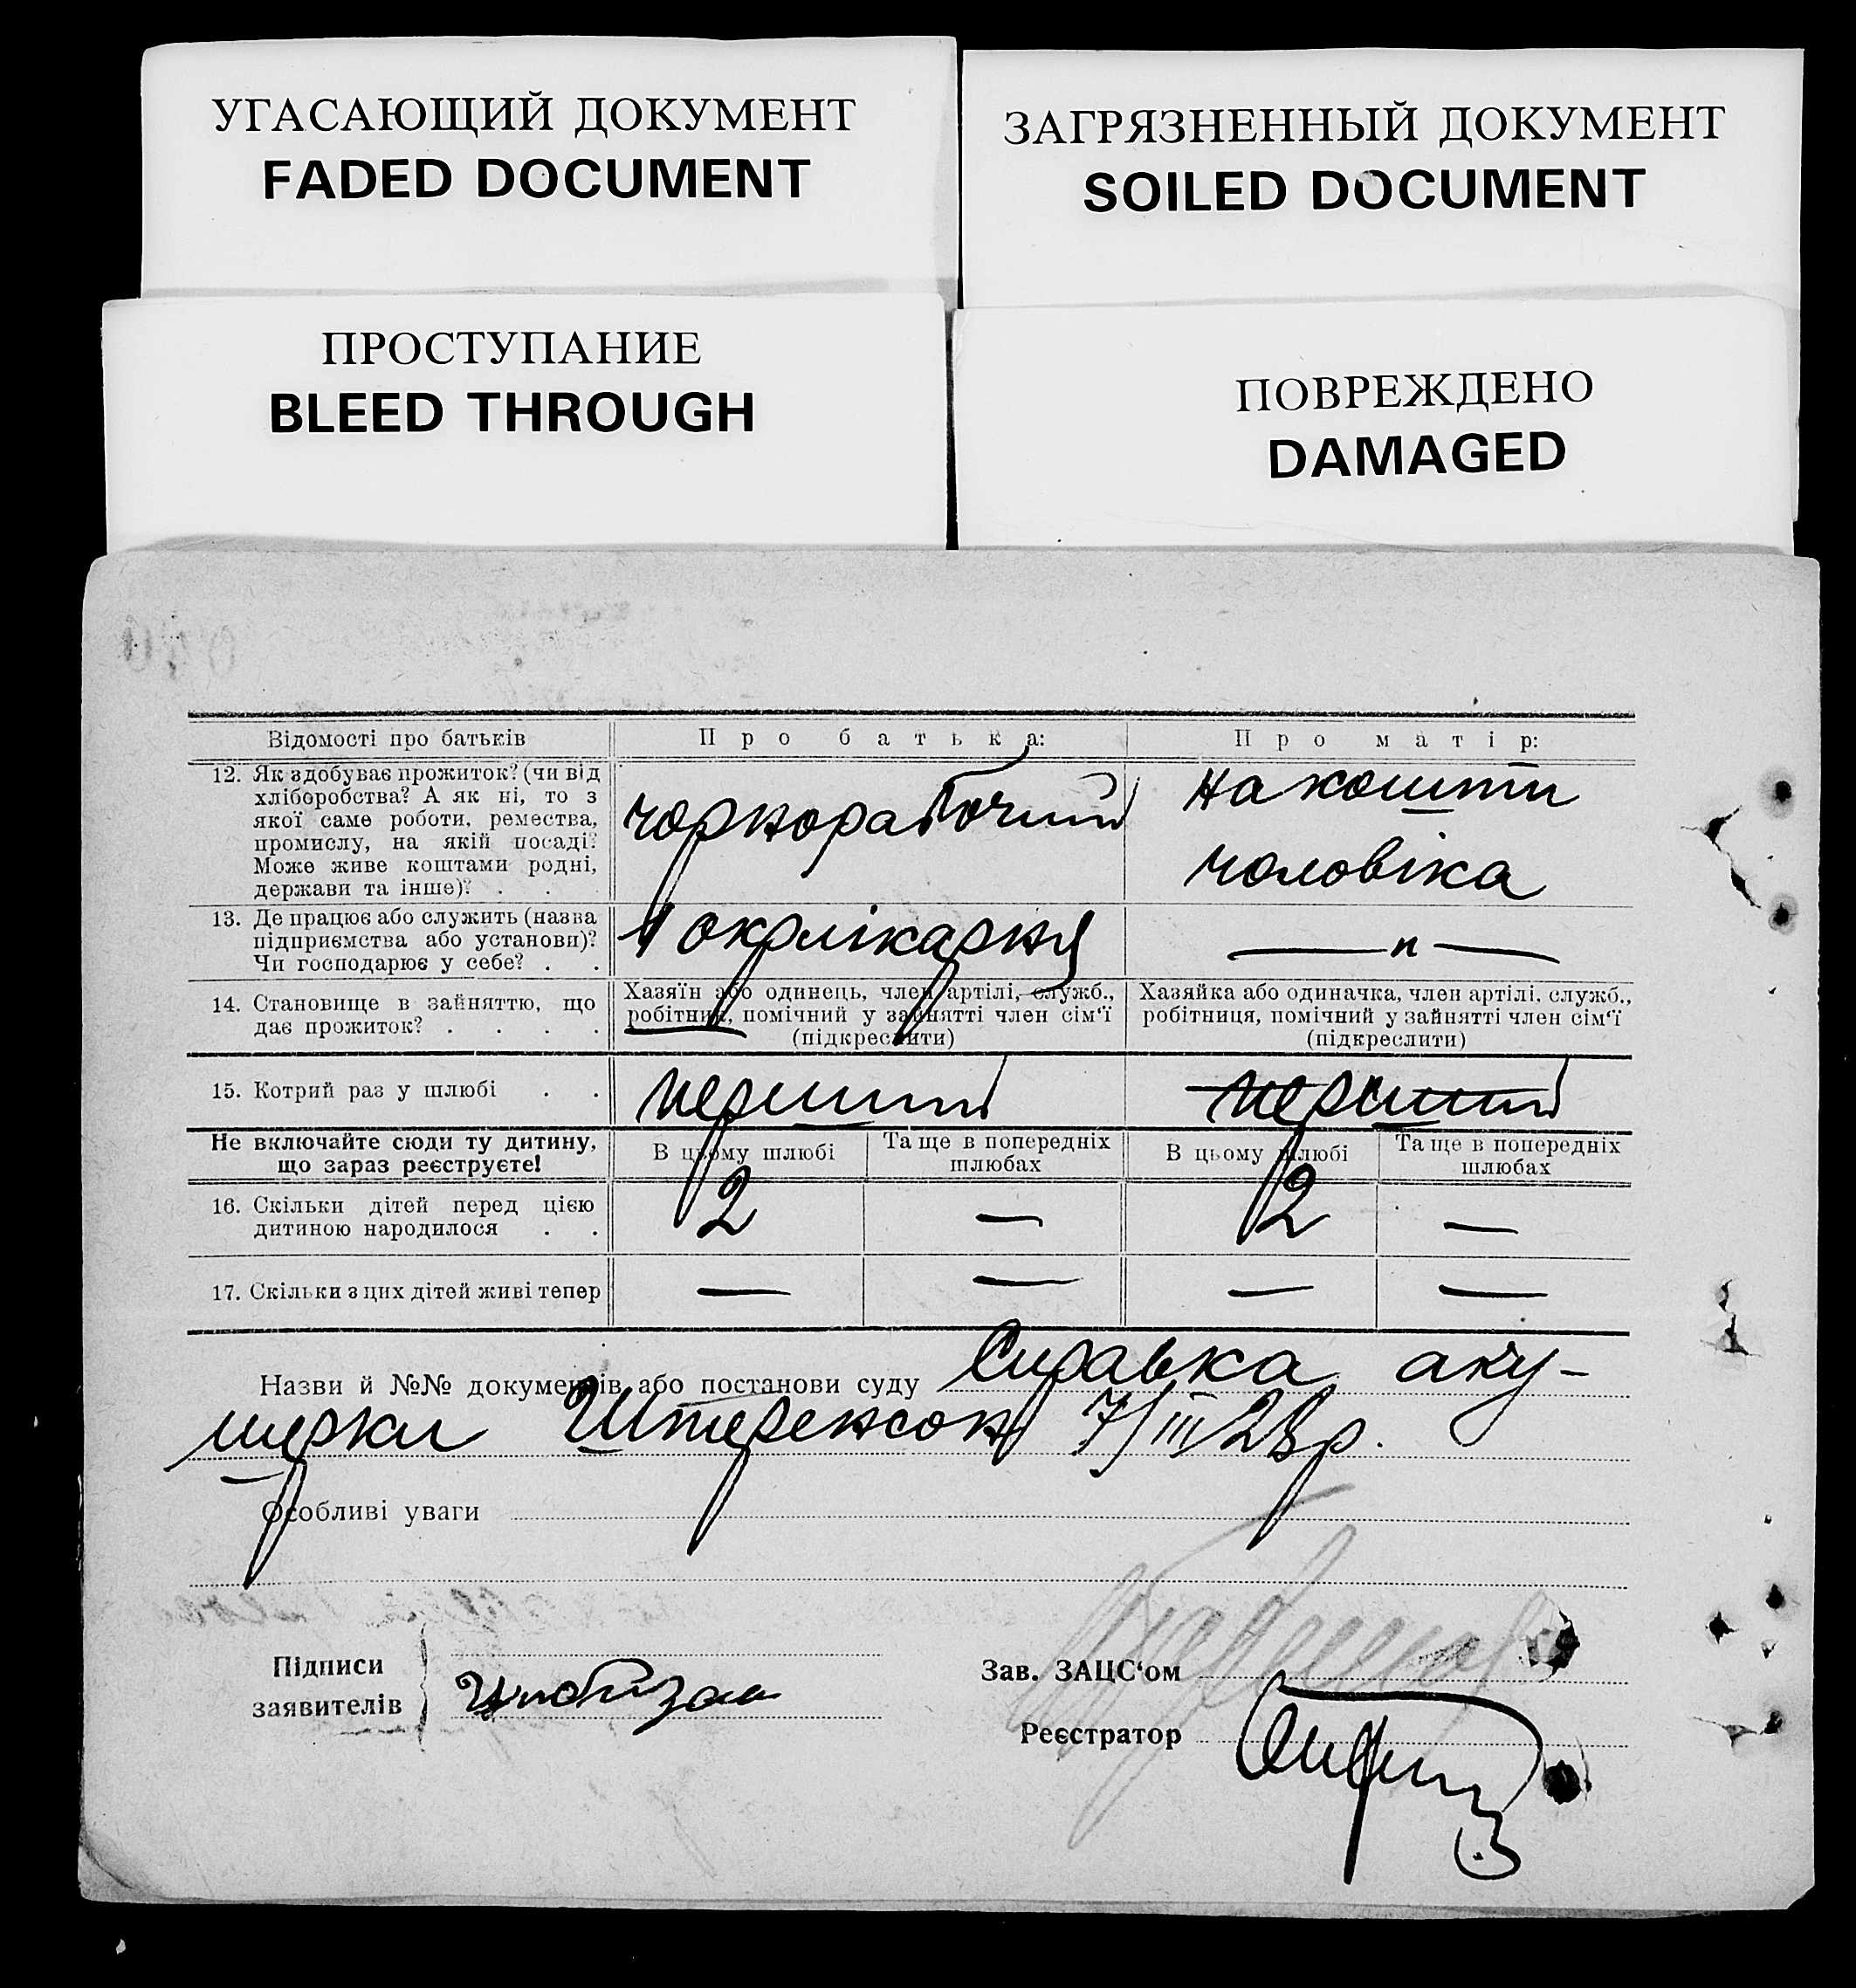 УГАСАЮЩИЙ ДОКУМЕНТ
FADED DOCUMENT
ЗАГРЯЗНЕННЫЙ ДОКУМЕНТ
SOILED DOCUMENT
ПРОСТУПАНИЕ
BLEED THROUGH
ПОВРЕЖДЕНО
DAMAGED
Відомості про батьків
Про батька:
Про матір:
12. Як здобуває прожиток? (чи від
хліборобства? А як ні, то з
якої саме роботи, ремества,
промислу, на якій посаді?
Може живе коштами родні,
держави та інше)? . .
чорнорабочий
на кошти
чоловіка
13. Де працює або служить (назва
підприємства або установи)?
Чи господарює у себе? . .
1 окрлікарня
— п —
14. Становище в зайняттю, що
дає прожиток? . . . .
Хазяїн або одинець, член артілі, служб.,
робітник, помічний у зайнятті член сім'ї
(підкреслити)
Хазяйка або одиначка, член артілі, служб.,
робітниця, помічний у зайнятті член сім'ї
(підкреслити)
15. Котрий раз у шлюбі . .
перший
перший
Не включайте сюди ту дитину,
що зараз реєструєте!
В цьому шлюбі
Та ще в попередніх
шлюбах
В цьому шлюбі
Та ще в попередніх
шлюбах
16. Скільки дітей перед цією
дитиною народилося . .
2 — 2 —
17. Скільки з цих дітей живі тепер
— — — —
Назви й №№ документів або постанови суду Справка аку-
шерки Штеренсон 7/III 28 р.
Особливі уваги
Підписи
заявителів
Зав. ЗАЦС'ом
Реєстратор